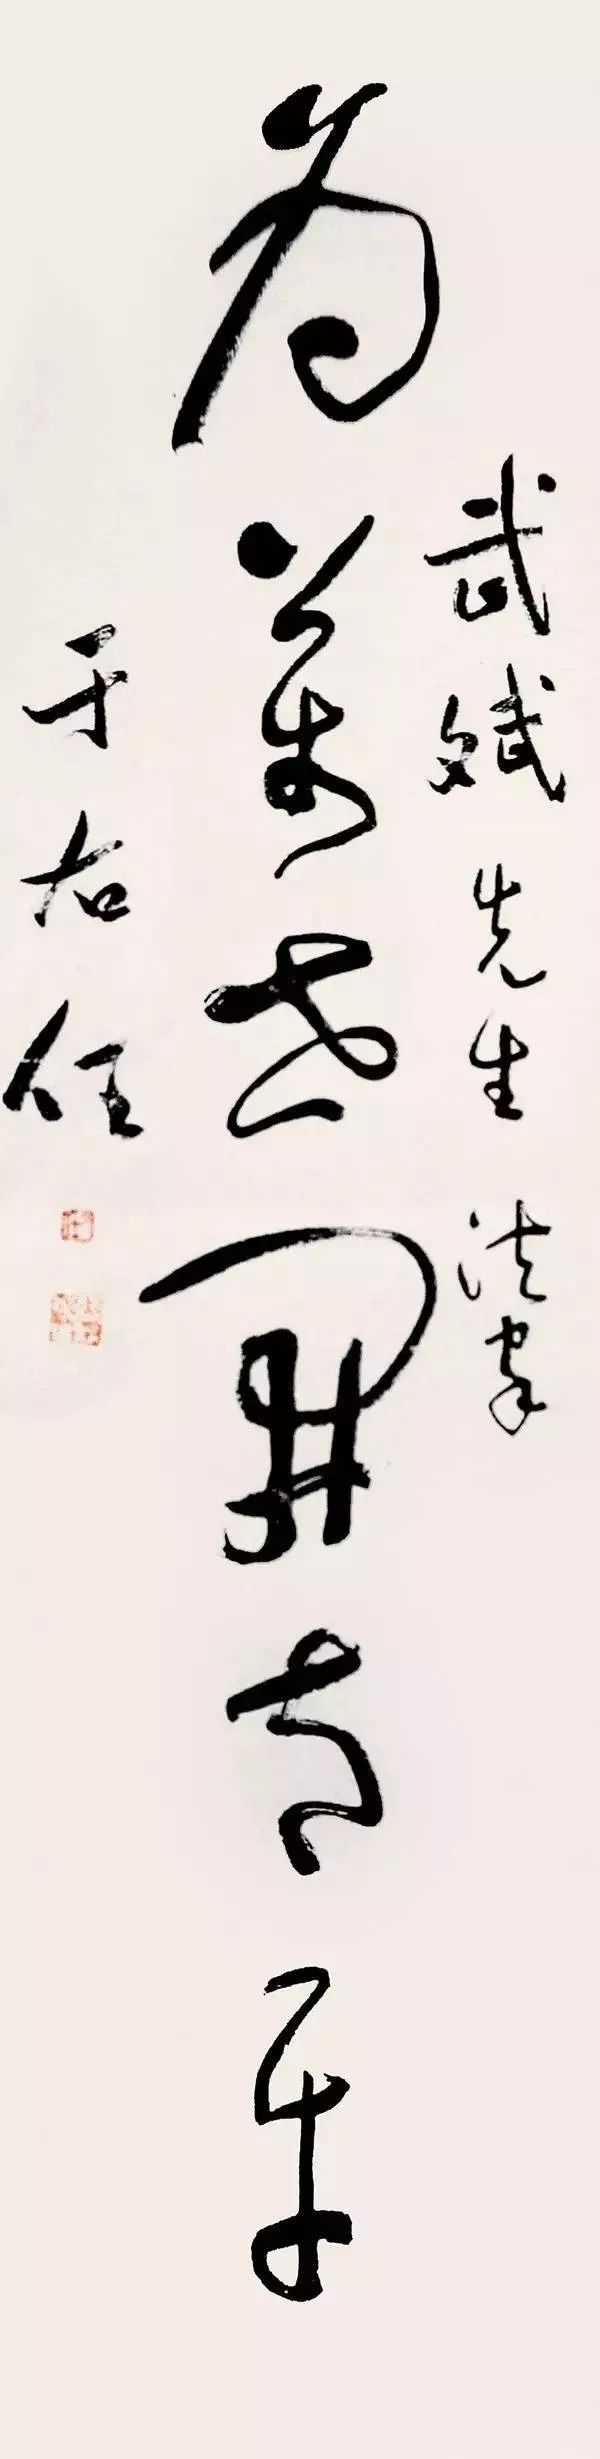 武斌先生法家
为万世开太平
于右任